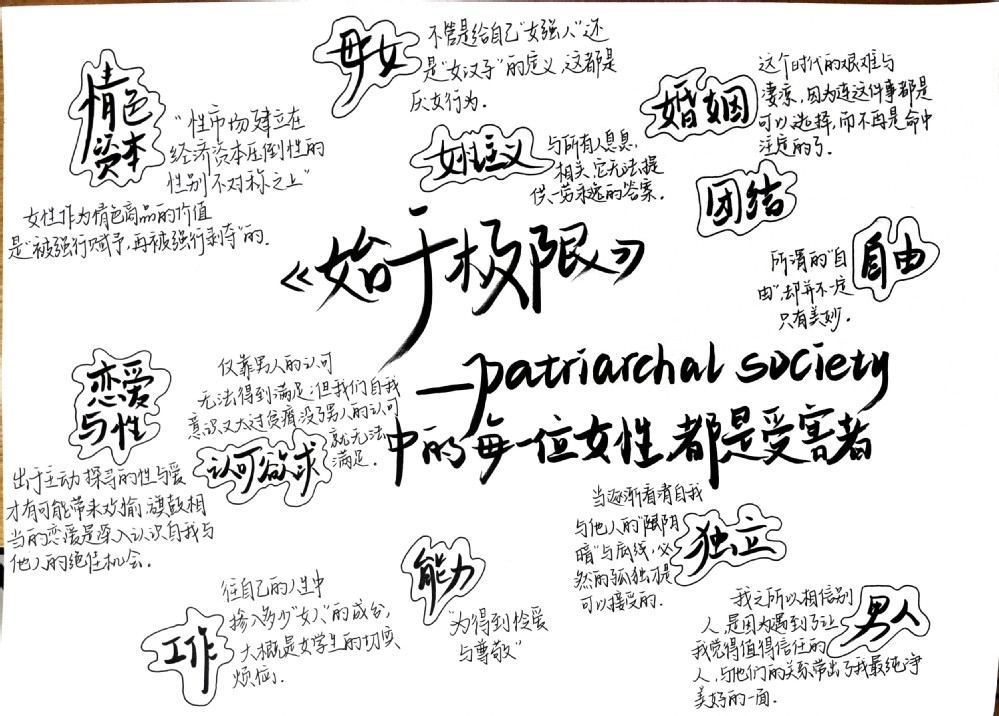 母女
不管是给自己"女强人"还
是"女汉子"的定义,这都是
厌女行为.
情色
资本
"性市场建立在
经济资本压倒性的
性别不对称之上"
女性作为情色商品的价值
是"被强行赋予,再被强行剥夺"的.
女性主义
与所有人息息
相关,它无法提
供一劳永逸的答案.
婚姻
这个时代的艰难与
凄凉,因为连这件事都是
可以选择,而不再是命中
注定的了.
团结
自由
所谓的"自
由",却并不一定
只有美妙.
《始于极限》
—patriarchal society
中的每一位女性都是受害者
恋爱
与性
出于主动探寻的性与爱
才有可能带来欢愉,旗鼓相
当的恋爱是深入认识自我与
他人的绝佳机会.
认可欲求
仅靠男人的认可
无法得到满足;但我们自我
意识又太过贫瘠,没了男人的认可
就无法
满足.
独立
当逐渐看清自我
与他人的"阴暗"与底线,必
然的孤独才是
可以接受的.
能力
"为得到怜爱
与尊敬"
工作
往自己的人生中
掺入多少"女人"的成分,
大概是女学生的切实
烦恼.
男人
我之所以相信别
人,是因为遇到了让
我觉得值得信任的
人,与他们的关系带出了我最纯净
美好的一面.